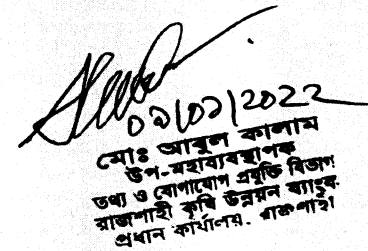 ০৯/০১/2022
মোঃ আবুল কালাম
উপ-মহাব্যবস্থাপক
তথ্য ও যোগাযোগ প্রযুক্তি বিভাগ
রাজশাহী কৃষি উন্নয়ন ব্যাংক
প্রধান কার্যালয়, রাজশাহী